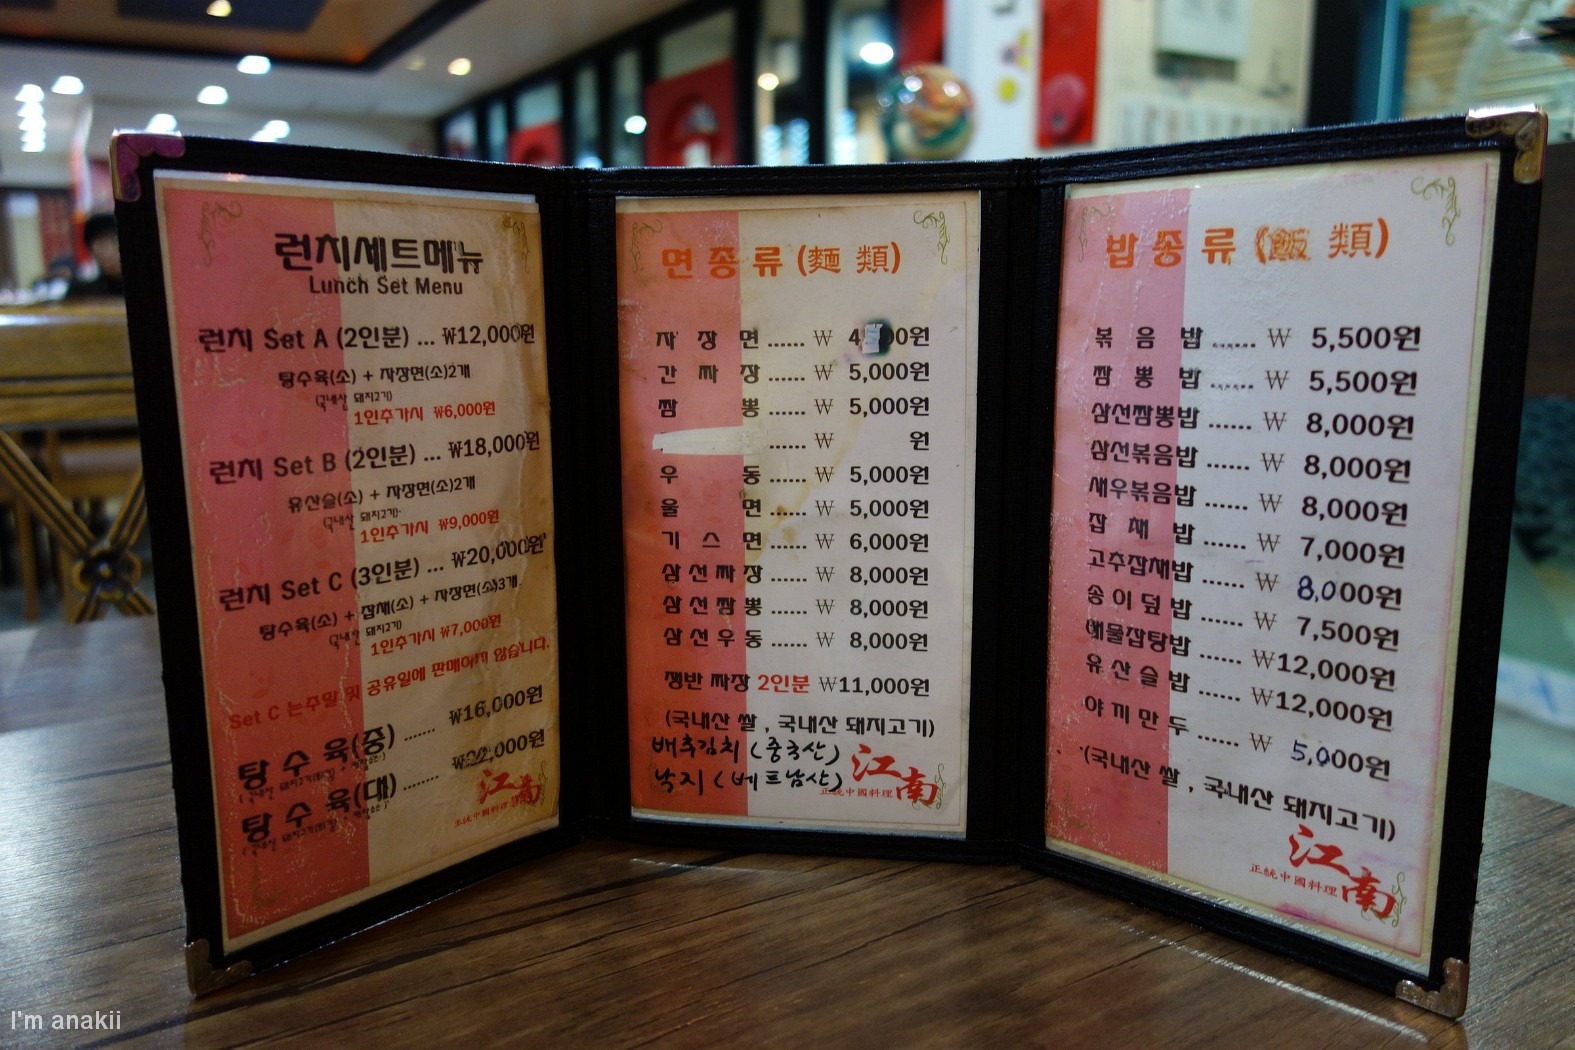 런치세트메뉴
Lunch Set Menu
런치 Set A (2인분) ... ₩12,000원
탕수육(소) + 자장면(소)2개
1인추가시 ₩6,000원
런치 Set B (2인분) ... ₩18,000원
유산슬(소) + 자장면(소)2개
1인추가시 ₩9,000원
런치 Set C (3인분) ... ₩20,000원
탕수육(소) + 잡채(소) + 자장면(소)3개
1인추가시 ₩7,000원
Set C 는주말 및 공휴일에 판매하지 않습니다.
탕수육(중) ...... ₩16,000원
탕수육(대) ...... ₩22,000원
江南
正統中國料理
면종류 (麵 類)
자장면 ...... ₩ 4 00원
간짜장 ...... ₩ 5,000원
짬뽕 ...... ₩ 5,000원
...... ₩ 원
우동 ...... ₩ 5,000원
울면 ...... ₩ 5,000원
기스면 ...... ₩ 6,000원
삼선짜장 ...... ₩ 8,000원
삼선짬뽕 ...... ₩ 8,000원
삼선우동 ...... ₩ 8,000원
쟁반짜장 2인분 ₩11,000원
(국내산 쌀 , 국내산 돼지고기)
배추김치 (중국산)
낙지 (베트남산)
江南
正統中國料理
밥종류 (飯 類)
볶음밥 ...... ₩ 5,500원
짬뽕밥 ...... ₩ 5,500원
삼선짬뽕밥 ...... ₩ 8,000원
삼선볶음밥 ...... ₩ 8,000원
새우볶음밥 ...... ₩ 8,000원
잡채밥 ...... ₩ 7,000원
고추잡채밥 ...... ₩ 8,000원
송이덮밥 ...... ₩ 7,500원
해물잡탕밥 ...... ₩12,000원
유산슬밥 ...... ₩12,000원
야끼만두 ...... ₩ 5,000원
(국내산 쌀 , 국내산 돼지고기)
江南
正統中國料理
I'm anakii